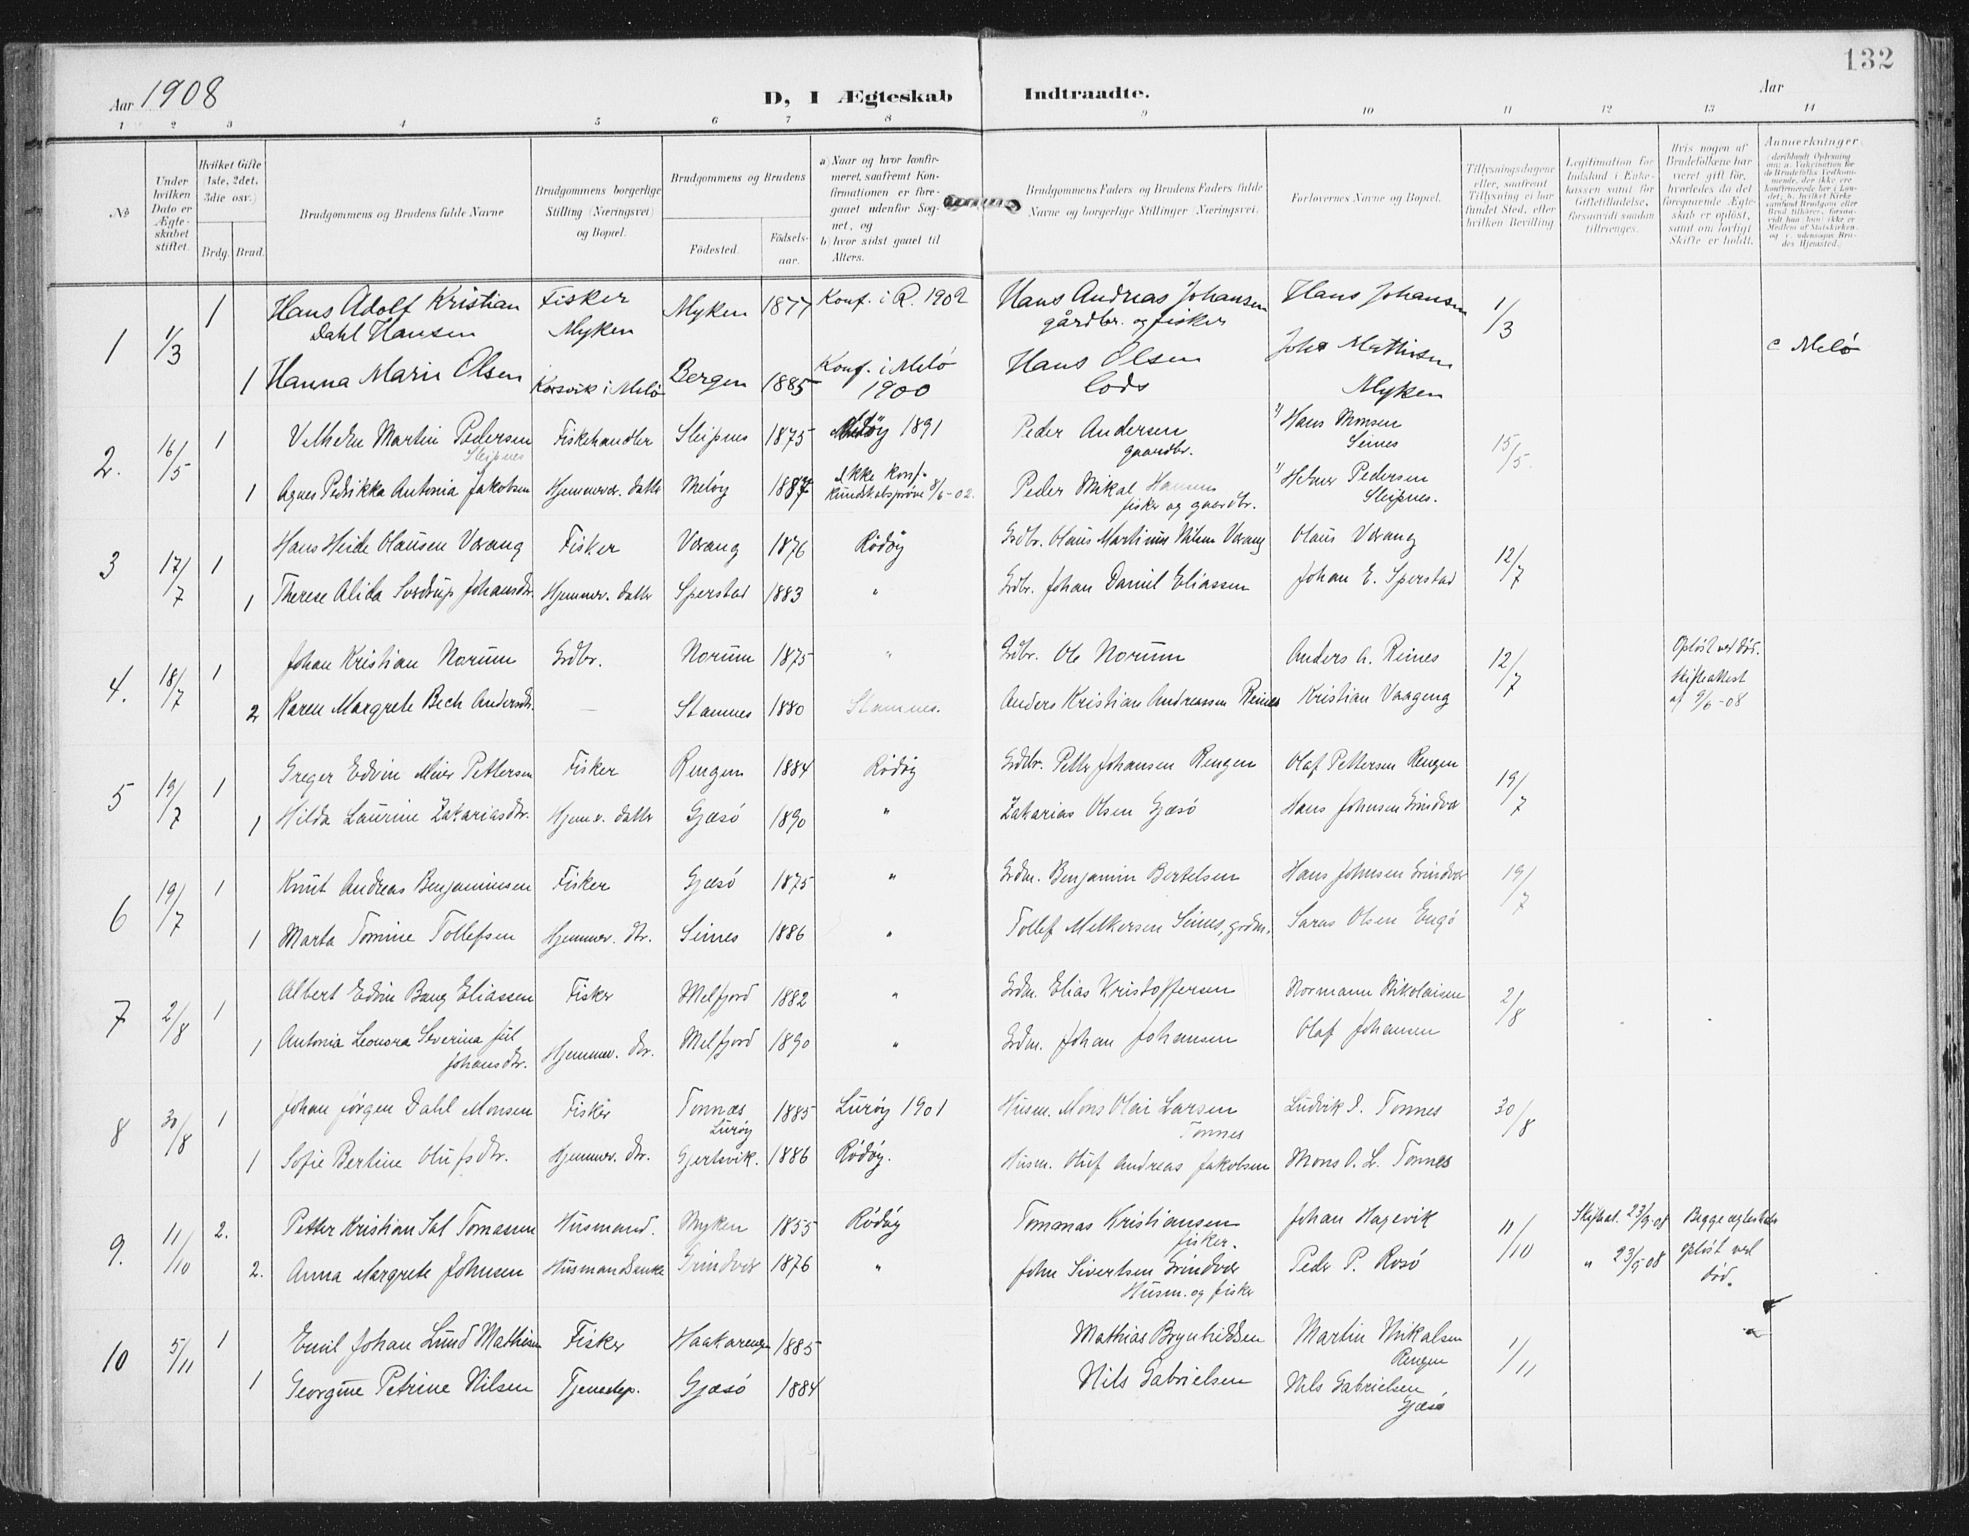 132
Aar 1908
D, I Ægteskab Indtraadte.
Aar
1 2 3 4 5 6 7 8 9 10 11 12 13 14
No
Under hvilken Dato er Ægteskabet stiftet.
Hvilket Gifte (1ste, 2det, 3die osv.)
Brdg. Brud.
Brudgommens og Brudens fulde Navne
Brudgommens borgerlige Stilling (Næringsvei) og Bopæl.
Brudgommens og Brudens
Fødested.
Fødselsaar.
a) Naar og hvor konfirmeret, saafremt Konfirmationen er foregaaet udenfor Sognet, og
b) hvor sidst gaaet til Alters.
Brudgommens Faders og Brudens Faders fulde Navne og borgerlige Stillinger Næringsvei.
Forlovernes Navne og Bopæl.
Tillysningsdagene eller, saafremt Tillysning ei har fundet Sted, efter hvilken Bevilling
Legitimation for Indskud i Enkekassen samt for Giftetilladelse, forsaavidt saadan tiltrænges.
Hvis nogen af Brudefolkene har været gift før, hvorledes da det foregaaende Ægteskab er opløst, samt om lovligt Skifte er holdt.
Anmærkninger
1 1/3 1 Hans Adolf Kristian Dahl Hansen Fisker Myken Myken 1877 Konf. i R. 1902 Hans Andreas Johansen gårdbr. og fisker Hans Johansen 1/3
1 Hanna Marie Olsen Korsvik i Melö Bergen 1885 Konf. i Melö 1900 Hans Olsen Lods Myken c Melö
2. 16/5 1 Martin Pedersen Sleipnes Fiskehandler Sleipnes 1875 1891 Peder Andersen gaardbr. Hans Monsen Seines 15/5.
1 Agnes Antonia Jakobsen Hjemmevær. datter Melöy 1887 Ikke konf. kundskabsprøve 8/6-02. Peder Mikal Hansen fisker og gaardbr. Pedersen Sleipnes.
3 17/7 1 Hans Heide Olausen Værang Fisker Værang 1876 Rödöy Grdbr. Olaus Martinus Værang Olaus Værang 12/7
1 Therese Alida Sverdrup Johansdtr. Hjemmev. datter Sperstad 1883 " Grdbr. Johan Daniel Eliassen Johan E. Sperstad
4. 18/7 1 Johan Kristian Norum Grdbr. Norum 1875 " Grdbr. Ole Norum Anders A. Reines 12/7 Opløst ved død. Skifteattest af 9/6-08
2 Karen Margrete Bech Andersdtr. — Stamnes 1880 Stamnes. Anders Kristian Andreassen Reines Kristian Vaageng
5 19/7 1 Greger Edvin Meier Pettersen Fisker Rengen 1884 Rödöy Grdbr. Petter Johansen Rengen Olaf Pettersen Rengen 19/7
1 Hilda Laurine Zakariasdtr. Hjemv. datter Gjæsö 1890 " Zakarias Olsen Gjæsö Hans Johnsen Grindvær
6 19/7 1 Knut Andreas Benjaminsen Fisker Gjæsö 1875 " Grdm. Benjamin Bertelsen Hans Johnsen Grindvær 19/7
1 Marta Tomine Tollefsen Hjemmev. dtr. Seines 1886 " Tollef Melkersen Seines, grdm. Olsen Engö
7 2/8 1 Albert Edvin Bang Eliassen Fisker Melfjord 1882 " Grdm. Elias Kristoffersen Normann Nikolaisen 2/8
1 Antonia Leonora Severina Jul Johansdtr. Hjemmev. dtr. Melfjord 1890 " Grdm. Johan Johansen Olaf Johansen
8 30/8 1 Johan Jörgen Dahl Monsen Fisker Tonnæs Luröy 1885 Luröy 1901 Husm. Mons Olai Larsen Tonnes Ludvik J. Tonnes 30/8
1 Sofie Bertine Olufsdtr. Hjemmev. dtr. Gjertsvik. 1886 Rödöy. Husm. Oluf Andreas Jakobsen Mons O. L. Tonnes
9. 11/10 2. Petter Kristian Sal Tomassen Husmand. Myken 1855 Rödöy Tommas Kristiansen fisker. Johan Hagevik 11/10 Skifteat. 23/9-08 Begge ægteskab opløst ved död.
2. Anna Margrete Johnsen Husmandsenke Grindvær 1876 " John Sivertsen Grindvær Husm. og fisker Peder P. Rosö " 23/9-08
10 5/11 1 Emil Johan Lund Mathisen Fisker Haakarengen 1885 Mathias Brynhildsen Martin Mikalsen Rengen 1/11
1 Georgine Petrine Nilsen Tjenestep. Gjæsö 1884 Nils Gabrielsen Nils Gabrielsen Gjæsö